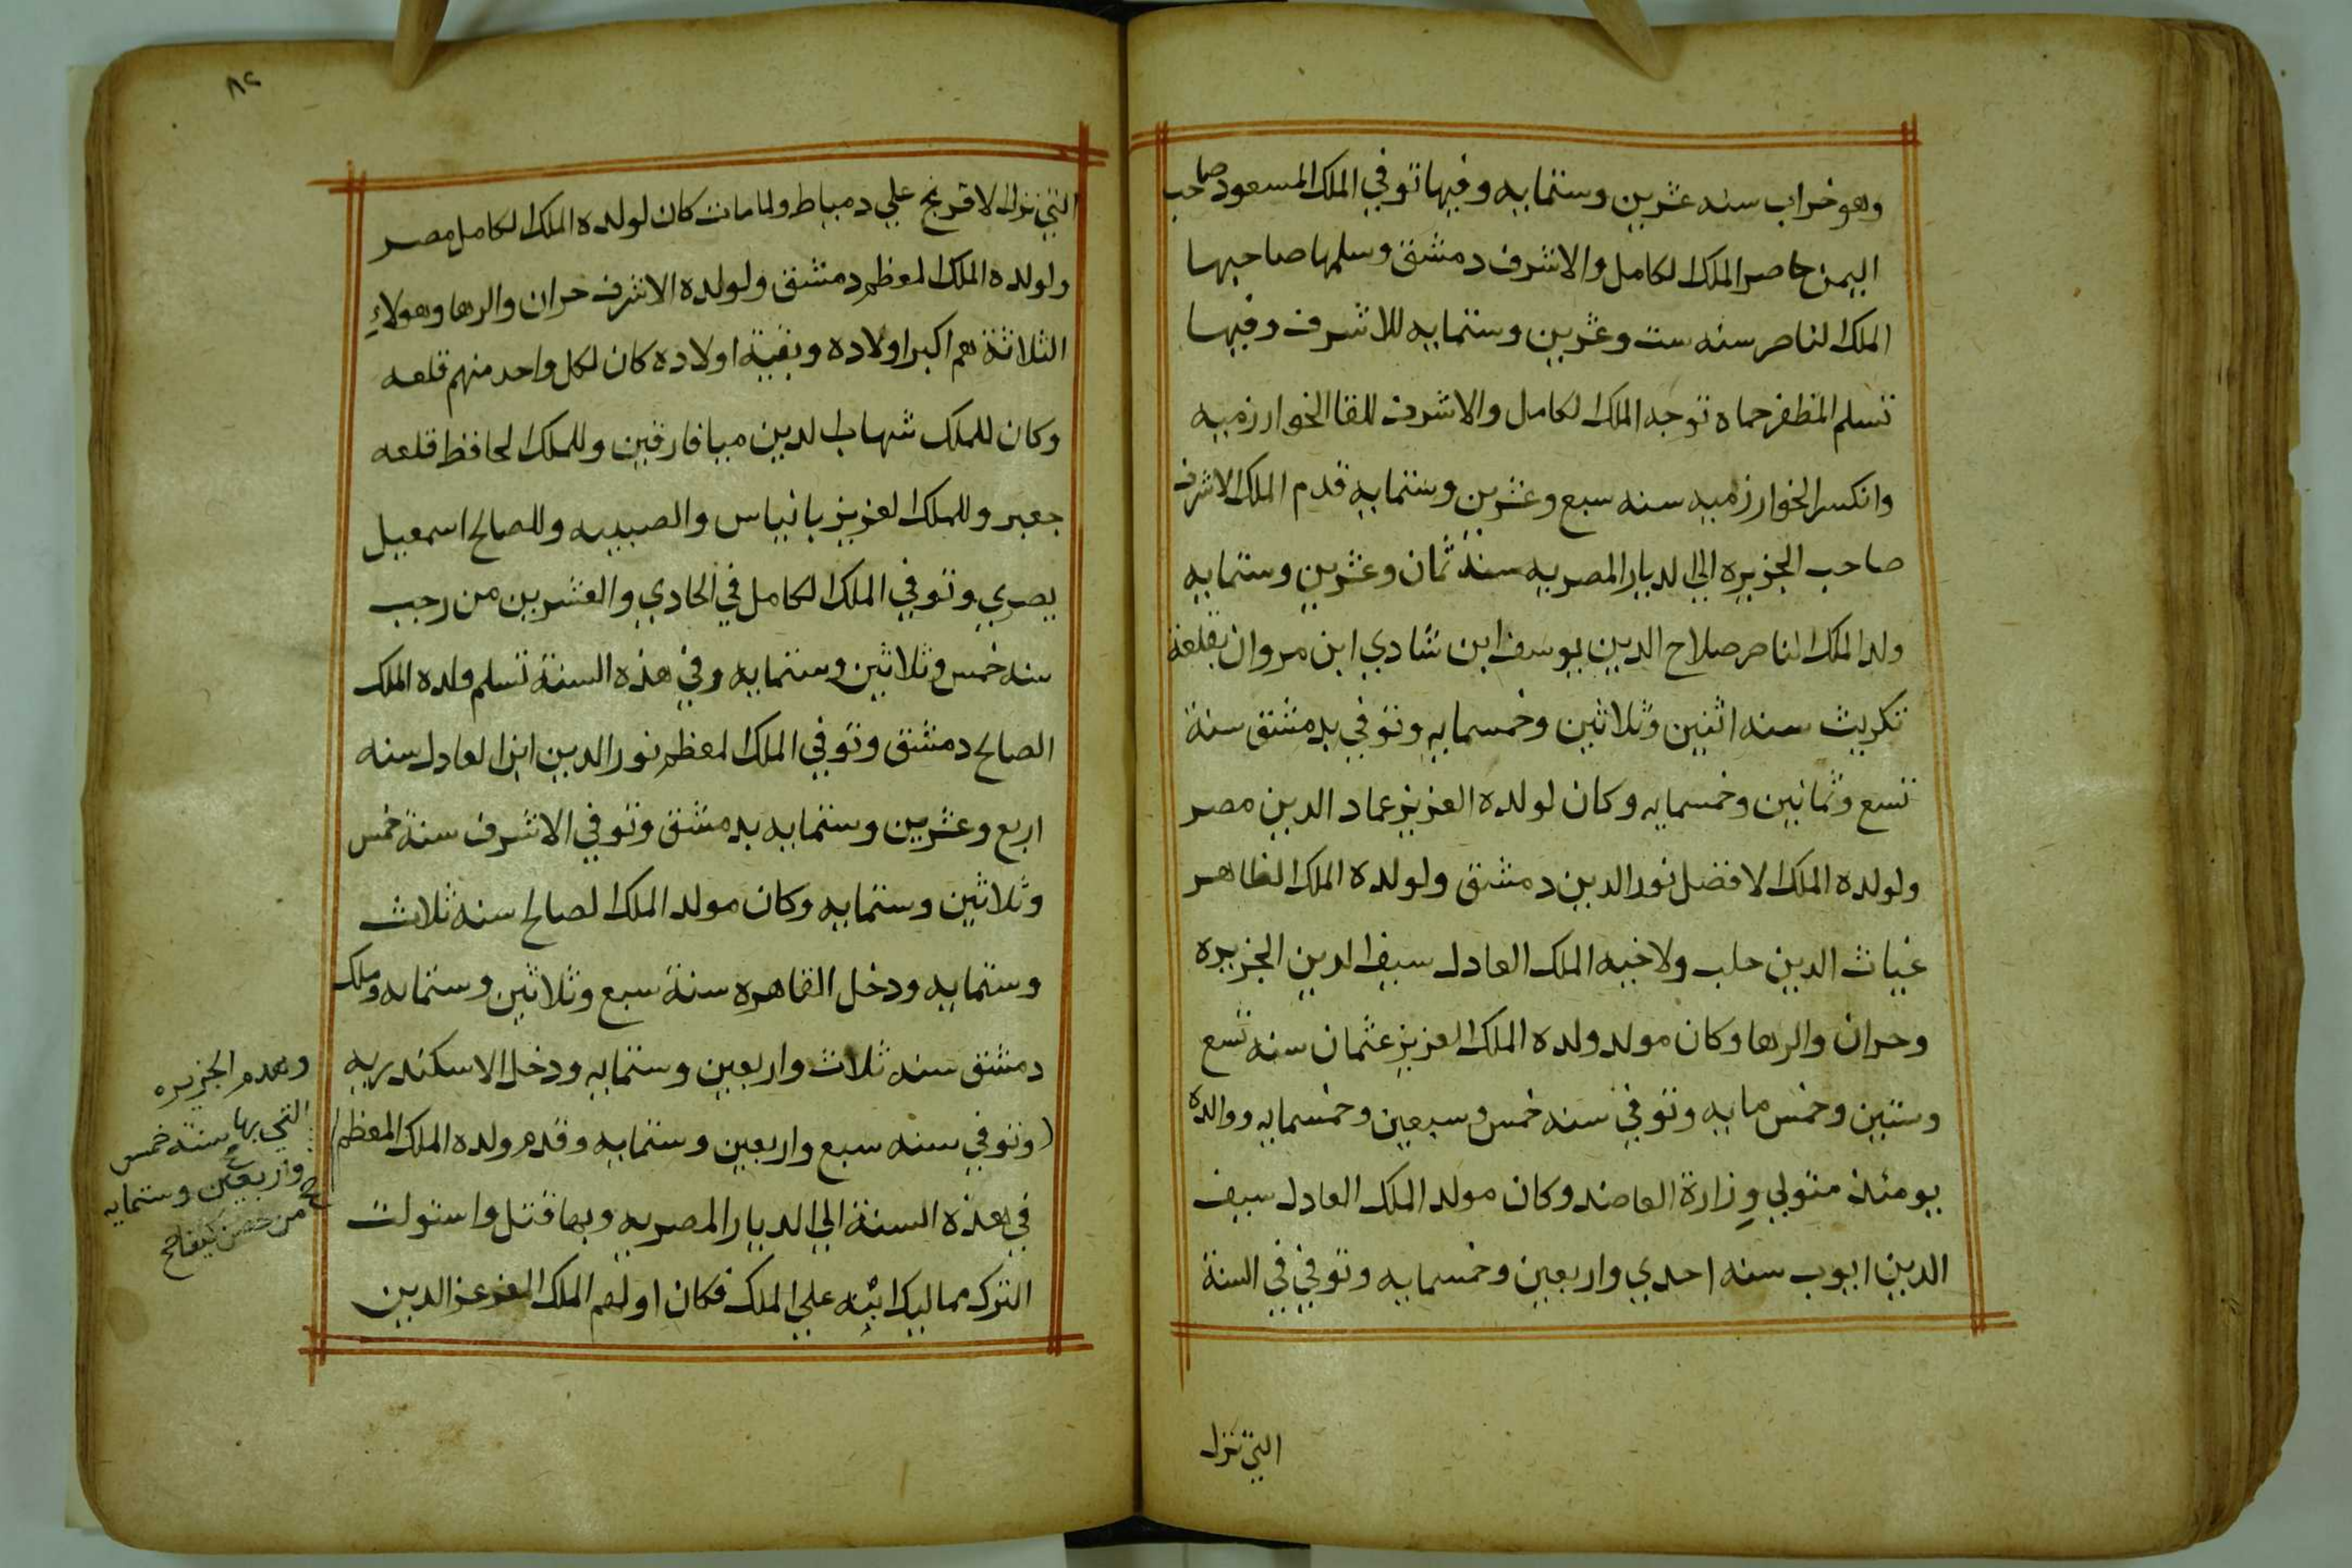 وهو خراب سنه عشرين وستمايه وفيها توفي الملك المسعود صاحب
اليمن حاصر الملك الكامل والاشرف دمشق وسلمها صاحبها
الملك الناصر سنه ست وعشرين وستمايه للاشرف وفيها
تسلم المظفر حماه توجه الملك الكامل والاشرف للقا الخوارزميه
وانكسر الخوارزميه سنه سبع وعشرين وستمايه قدم الملك الاشرف
صاحب الجزيره الي الديار المصريه سنة ثمان وعشرين وستمايه
ولد الملك الناصر صلاح الدين يوسف ابن شادي ابن مروان بقلعة
تكريت سنه اثنين وثلاثين وخمسمايه وتوفي بدمشق سنة
تسع وثمانين وخمسمايه وكان لولده العزيز عماد الدين مصر
ولولده الملك الافضل نور الدين دمشق ولولده الملك الظاهر
غياث الدين حلب ولاخيه الملك العادل سيف الدين الجزيره
وحران والرها وكان مولد ولده الملك العزيز عثمان سنه تسع
وستين وخمس مايه وتوفي سنه خمس وسبعين وخمسمايه ووالده
يومئذ متولي وزارة العاضد وكان مولد الملك العادل سيف
الدين ايوب سنه احدي واربعين وخمسمايه وتوفي في السنة
التي نزل
٨٢
التي نزل الافرنج علي دمياط ولما مات كان لولده الملك الكامل مصر
ولولده الملك المعظم دمشق ولولده الاشرف حران والرها وهولاء
الثلاثة هم اكبر اولاده وبقية اولاده كان لكل واحد منهم قلعه
وكان للملك شهاب الدين ميافارقين وللملك الحافظ قلعه
جعبر وللملك العزيز بانياس والصبيبه وللصالح اسمعيل
بصري وتوفي الملك الكامل في الحادي والعشرين من رجب
سنه خمس وثلاثين وستمايه وفي هذه السنة تسلم ولده الملك
الصالح دمشق وتوفي الملك المعظم نور الدين ابن العادل سنه
اربع وعشرين وستمايه بدمشق وتوفي الاشرف سنة خمس
وثلاثين وستمايه وكان مولد الملك الصالح سنه ثلاث
وستمايه ودخل القاهره سنة سبع وثلاثين وستمايه وملك
دمشق سنه ثلاث واربعين وستمايه ودخل الاسكندريه
وتوفي سنه سبع واربعين وستمايه وقدم ولده الملك المعظم
في هذه السنة الي الديار المصريه وبها قتل واستولت
الترك مماليك ابيه علي الملك فكان اولهم الملك المعز عز الدين
وهدم الجزيره
التي بها سنة خمس
واربعين وستمايه
من حصن كيفا صح